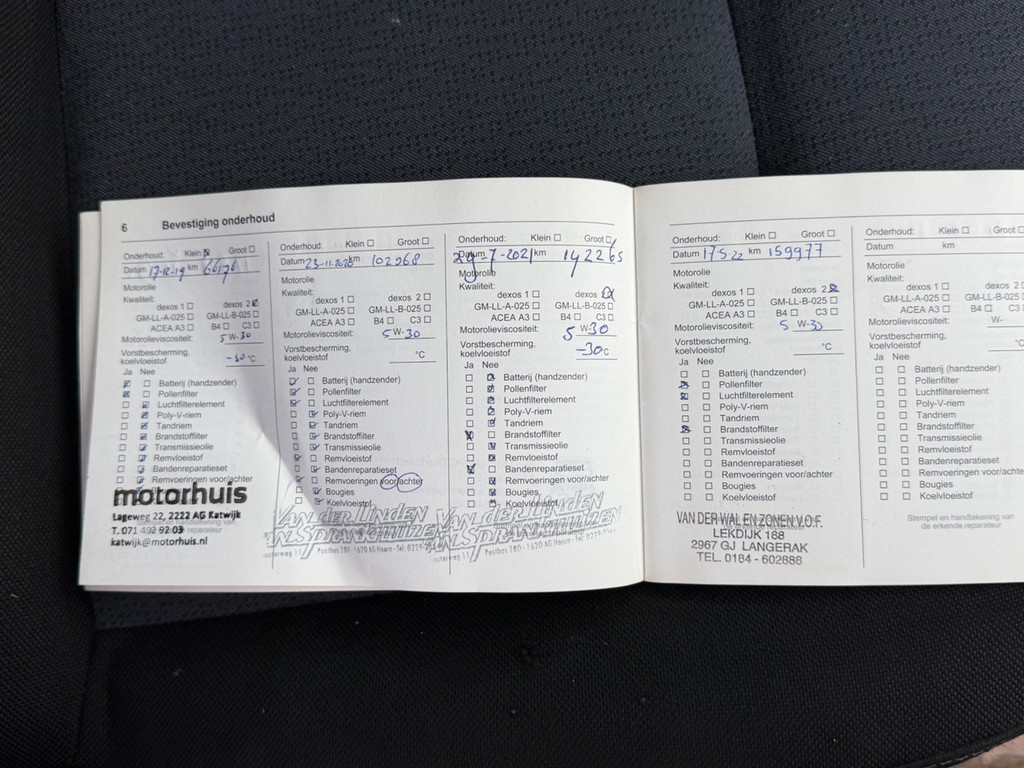 6 Bevestiging onderhoud
Onderhoud: Klein Groot
Datum 17-12-19 km 66176
Motorolie
Kwaliteit:
dexos 1 dexos 2
GM-LL-A-025 GM-LL-B-025
ACEA A3 B4 C3
Motorolieviscositeit: 5 W-30
Vorstbescherming,
koelvloeistof -30 °C
Ja Nee
Batterij (handzender)
Pollenfilter
Luchtfilterelement
Poly-V-riem
Tandriem
Brandstoffilter
Transmissieolie
Remvloeistof
Bandenreparatieset
Remvoeringen voor/achter
motorhuis
Lageweg 22, 2222 AG Katwijk
T. 071 402 92 03
katwijk@motorhuis.nl
Onderhoud: Klein Groot
Datum 23-11-2020 km 102968
Motorolie
Kwaliteit:
dexos 1 dexos 2
GM-LL-A-025 GM-LL-B-025
ACEA A3 B4 C3
Motorolieviscositeit: 5 W-30
Vorstbescherming,
koelvloeistof °C
Ja Nee
Batterij (handzender)
Pollenfilter
Luchtfilterelement
Poly-V-riem
Tandriem
Brandstoffilter
Transmissieolie
Remvloeistof
Bandenreparatieset
Remvoeringen voor/achter
Bougies
Koelvloeistof
VAN DER LINDEN
Postbus 280 - 1620 AG Hoorn - Tel:
Onderhoud: Klein Groot
Datum 29-7-2021 km 142265
Motorolie
Kwaliteit:
dexos 1 dexos 2
GM-LL-A-025 GM-LL-B-025
ACEA A3 B4 C3
Motorolieviscositeit: 5 W-30
Vorstbescherming,
koelvloeistof -30 °C
Ja Nee
Batterij (handzender)
Pollenfilter
Luchtfilterelement
Poly-V-riem
Tandriem
Brandstoffilter
Transmissieolie
Remvloeistof
Bandenreparatieset
Remvoeringen voor/achter
Bougies
Koelvloeistof
VAN DER LINDEN
Postbus 280 - 1620 AG Hoorn - Tel:
Onderhoud: Klein Groot
Datum 17 5 22 km 159977
Motorolie
Kwaliteit:
dexos 1 dexos 2
GM-LL-A-025 GM-LL-B-025
ACEA A3 B4 C3
Motorolieviscositeit: 5 W-30
Vorstbescherming,
koelvloeistof °C
Ja Nee
Batterij (handzender)
Pollenfilter
Luchtfilterelement
Poly-V-riem
Tandriem
Brandstoffilter
Transmissieolie
Remvloeistof
Bandenreparatieset
Remvoeringen voor/achter
Bougies
Koelvloeistof
VAN DER WAL EN ZONEN V.O.F.
LEKDIJK 188
2967 GJ LANGERAK
TEL. 0184 - 602888
Onderhoud: Klein Groot
Datum km
Motorolie
Kwaliteit:
dexos 1 dexos 2
GM-LL-A-025 GM-LL-B-025
ACEA A3 B4 C3
Motorolieviscositeit: W-
Vorstbescherming,
koelvloeistof
Ja Nee
Batterij (handzender)
Pollenfilter
Luchtfilterelement
Poly-V-riem
Tandriem
Brandstoffilter
Transmissieolie
Remvloeistof
Bandenreparatieset
Remvoeringen voor/achter
Bougies
Koelvloeistof
Stempel en handtekening van
de erkende reparateur